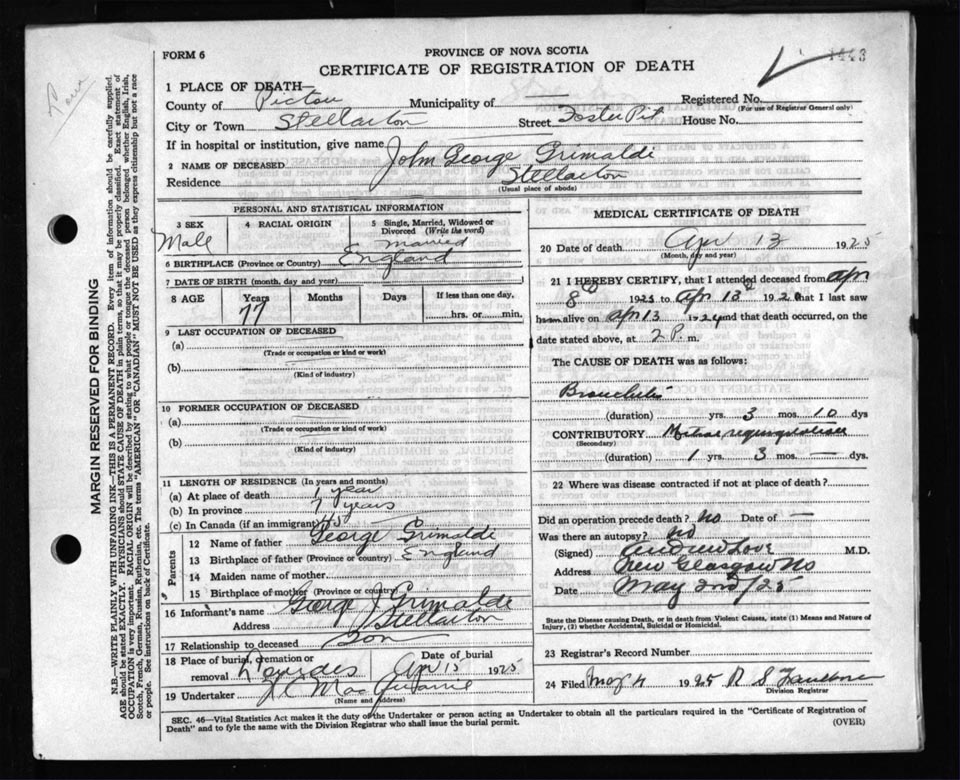 FORM 6
PROVINCE OF NOVA SCOTIA
CERTIFICATE OF REGISTRATION OF DEATH
1443
1 PLACE OF DEATH—
County of Pictou Municipality of — Registered No.
(For use of Registrar General only)
City or Town Stellarton Street Foster Pit House No.
If in hospital or institution, give name
2 NAME OF DECEASED John George Grimaldi
Residence Stellarton
(Usual place of abode)
PERSONAL AND STATISTICAL INFORMATION
3 SEX Male
4 RACIAL ORIGIN
5 Single, Married, Widowed or Divorced (Write the word) married
6 BIRTHPLACE (Province or Country) England
7 DATE OF BIRTH (month, day and year)
8 AGE Years 77 Months Days If less than one day, hrs. or min.
9 LAST OCCUPATION OF DECEASED
(a)
(Trade or occupation or kind or work)
(b)
(Kind of industry)
10 FORMER OCCUPATION OF DECEASED
(a)
(Trade or occupation or kind of work)
(b)
(Kind of industry)
11 LENGTH OF RESIDENCE (In years and months)
(a) At place of death 1 year
(b) In province 7 years
(c) In Canada (if an immigrant)
Parents
12 Name of father George Grimaldi
13 Birthplace of father (Province or country) England
14 Maiden name of mother
15 Birthplace of mother (Province or country)
16 Informant's name George J Grimaldi
Address Stellarton
17 Relationship to deceased Son
18 Place of burial, cremation or removal Date of burial Apr 15 1925
19 Undertaker
(Name and Address)
MEDICAL CERTIFICATE OF DEATH
20 Date of death Apr 13 1925
(Month, day and year)
21 I HEREBY CERTIFY, that I attended deceased from Apr
8 1925 to Apr 13 192 that I last saw
him alive on Apr 13 192 and that death occurred, on
date stated above, at 2 P. m.
The CAUSE OF DEATH was as follows:
Bronchitis
(duration) yrs. 3 mos. 10 dys
CONTRIBUTORY Mitral regurgitation
(Secondary)
(duration) 1 yrs. 3 mos. — dys.
22 Where was disease contracted if not at place of death?
Did an operation precede death? No Date of —
Was there an autopsy? No
(Signed) Andrew Love M.D.
Address New Glasgow NS
Date May 2nd/25
State the Disease causing Death, or in death from Violent Causes, state (1) Means and Nature of
Injury, (2) whether Accidental, Suicidal or Homicidal.
23 Registrar's Record Number
24 Filed May 4 1925 R S
Division Registrar
SEC. 46—Vital Statistics Act makes it the duty of the Undertaker or person acting as Undertaker to obtain all the particulars required in the "Certificate of Registration of
Death" and to fyle the same with the Division Registrar who shall issue the burial permit.
(OVER)
MARGIN RESERVED FOR BINDING
N.B.—WRITE PLAINLY WITH UNFADING INK—THIS IS A PERMANENT RECORD. Every item of information should be carefully supplied.
AGE should be stated EXACTLY. PHYSICIANS should STATE CAUSE OF DEATH in plain terms, so that it may be properly classified. Exact statement of
OCCUPATION is very important. RACIAL ORIGIN will be described by stating to what people or tongue the deceased person belonged whether English, Irish,
Scotch, French, German, Russian, Ruthenian, etc. The terms "AMERICAN" OR "CANADIAN" MUST NOT BE USED as they express citizenship but not a race
or people. See instructions on back of Certificate.